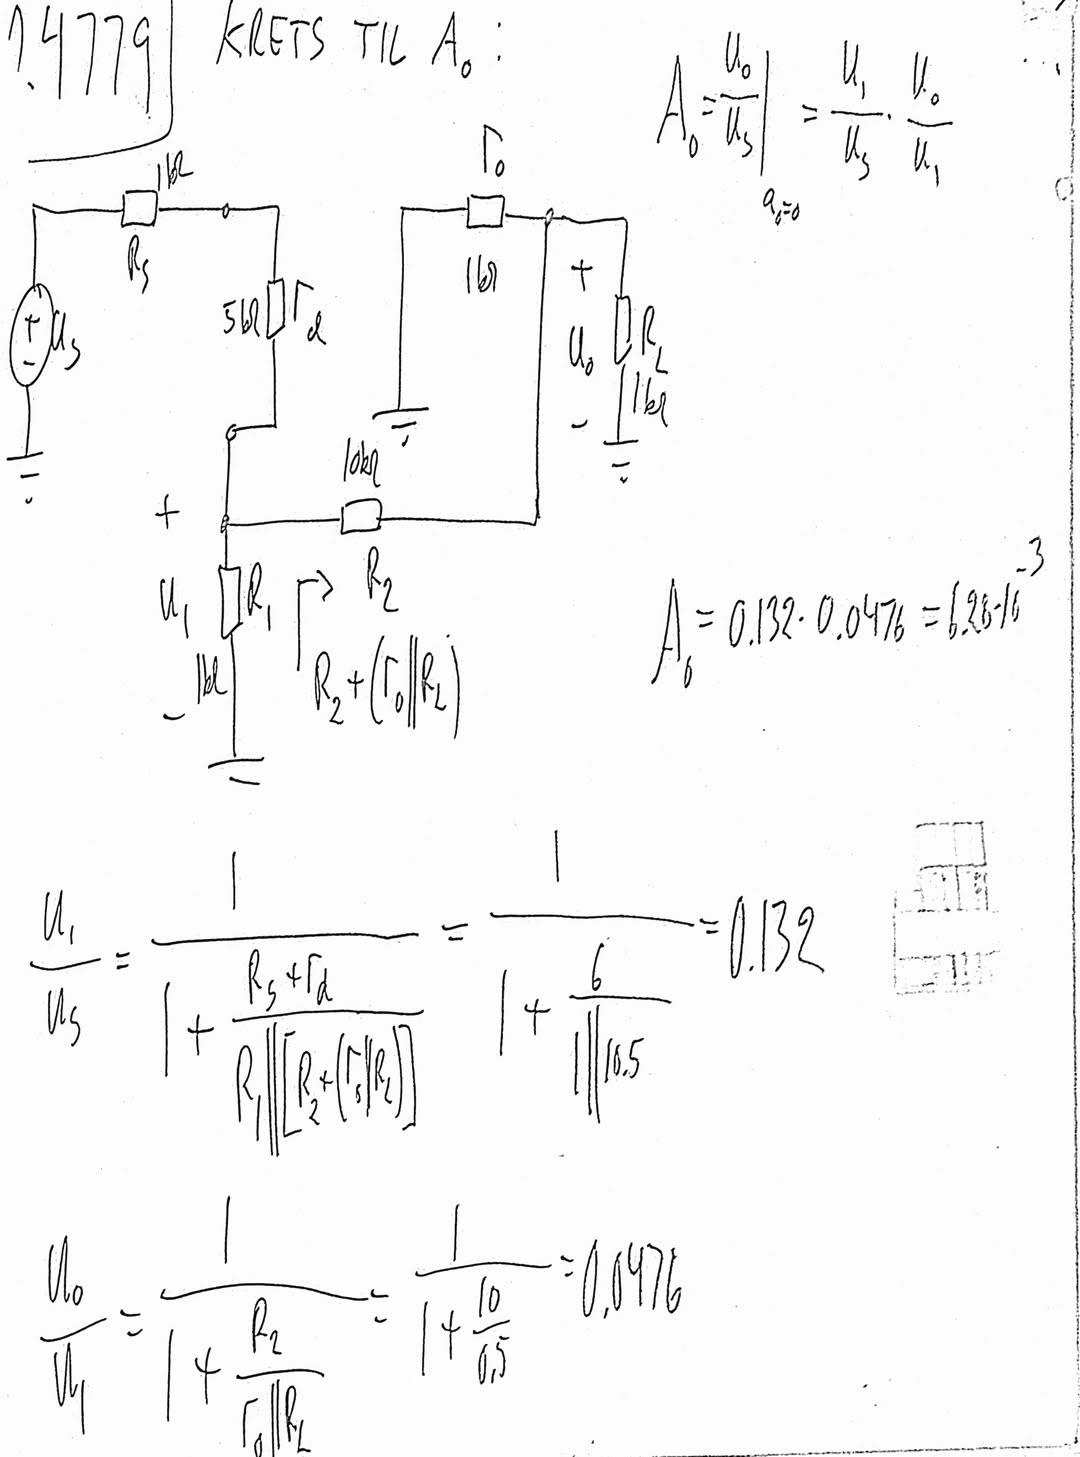 1.4779 KRETS TIL A₀ :
A₀ = u₀/uₛ |a₀=0 = u₁/uₛ · u₀/u₁
1kΩ
Rₛ
uₛ
+
-
5kΩ r_d
r₀
1kΩ
+
u₀
-
R_L
1kΩ
10kΩ
R₂
+
u₁
-
R₁
1kΩ
R₂ + (r₀||R_L)
A₀ = 0.132 · 0.0476 = 6.28·10⁻³
u₁/uₛ = 1/(1 + (Rₛ + r_d)/(R₁||[R₂+(r₀||R_L)])) = 1/(1 + 6/(1||10.5)) = 0.132
u₀/u₁ = 1/(1 + R₂/(r₀||R_L)) = 1/(1 + 10/0,5) = 0,0476